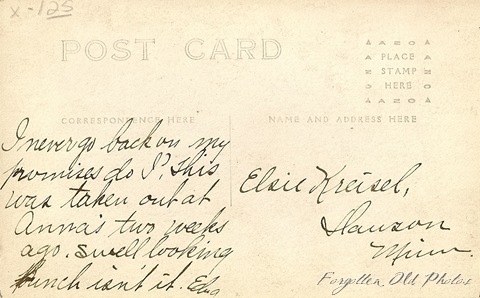 x-125
POST CARD
AZO
PLACE
STAMP
HERE
AZO
CORRESPONDENCE HERE
NAME AND ADDRESS HERE
I never go back on my
promises do I? This
was taken out at
Anna's two weeks
ago. Swell looking
bunch isn't it. Edna
Elsie Kreisel,
Hanson
Minn.
Forgotten Old Photos